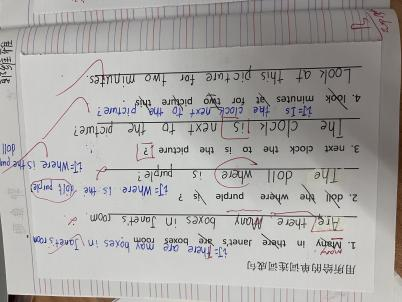 用所给的单词连词成句
1. Many in there Janet's are boxes room
many
订=There are may boxes in Janet's room
Are there Many boxes in Janet's room.
2. doll the where purple is ?
订=Where is the doll purple
The doll where is purple?
3. next clock the to is the picture ?
The clock is next to the picture?
订=Is the clock next to the picture?
4. look minutes at for two picture this
Look at this picture for two minutes.
Where is the
doll